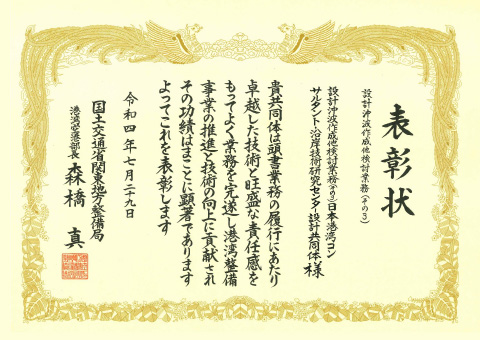 表彰状
設計沖波作成他検討業務(その3)
設計沖波作成他検討業務(その3)日本港湾コン
サルタント・沿岸技術研究センター設計共同体 様
貴共同体は頭書業務の履行にあたり
卓越した技術と旺盛な責任感を
もってよく業務を完遂し港湾整備
事業の推進と技術の向上に貢献され
その功績はまことに顕著であります
よってこれを表彰します
令和四年七月二十九日
国土交通省関東地方整備局
港湾空港部長 森橋 真